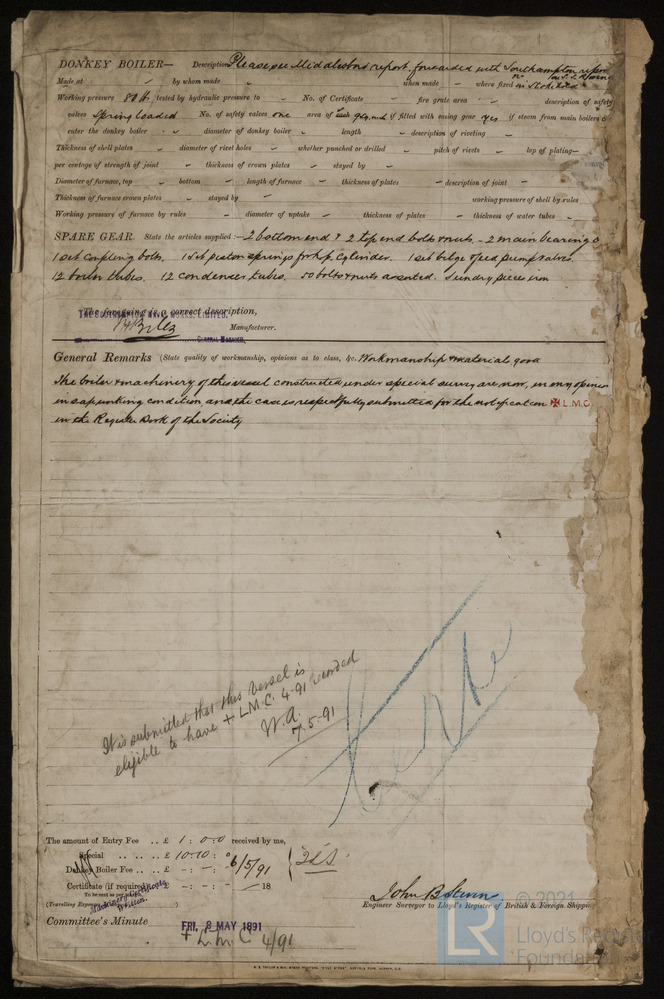 DONKEY BOILER— Description Please see Middlesbro' report forwarded with Southampton report
Made at by whom made when made where fixed in Stokehold
Working pressure 80 lb tested by hydraulic pressure to No. of Certificate fire grate area description of safety
valves Spring loaded No. of safety valves one area of each if fitted with easing gear yes if steam from main boilers
enter the donkey boiler diameter of donkey boiler length description of riveting
Thickness of shell plates diameter of rivet holes whether punched or drilled pitch of rivets lap of plating
per centage of strength of joint thickness of crown plates stayed by
Diameter of furnace, top bottom length of furnace thickness of plates description of joint
Thickness of furnace crown plates stayed by working pressure of shell by rules
Working pressure of furnace by rules diameter of uptake thickness of plates thickness of water tubes
SPARE GEAR. State the articles supplied:— 2 bottom end & 2 top end bolts & nuts. 2 main bearing
1 set coupling bolts. 1 set piston springs for h.p. cylinder. 1 set bilge & feed pump valves.
12 boiler tubes. 12 condenser tubes. 50 bolts & nuts assorted. Sundry pieces iron
The foregoing is a correct description,
Manufacturer.
GENERAL MANAGER.
General Remarks (State quality of workmanship, opinions as to class, &c. Workmanship & material good
The boiler & machinery of the vessel constructed under special survey are now, in my opinion
in safe working condition and the case is respectfully submitted for the notification ✠ L.M.C.
in the Register Book of the Society
It is submitted that this vessel is
eligible to have + LMC. 4.91 recorded
W.A.
7.5.91
The amount of Entry Fee .. £ 1 : 0 : 0 received by me,
Special .. .. .. £ 10 : 10 :
Donkey Boiler Fee .. £ – : – : 6/5/91
Certificate (if required) £ – : – : 18
(Travelling Expenses
John B. Stevin
Engineer Surveyor to Lloyd's Register of British & Foreign Shipping
Committee's Minute
FRI. 8 MAY 1891
+ L.M.C 4/91
© 2021
LR
Lloyd's Register
Foundation